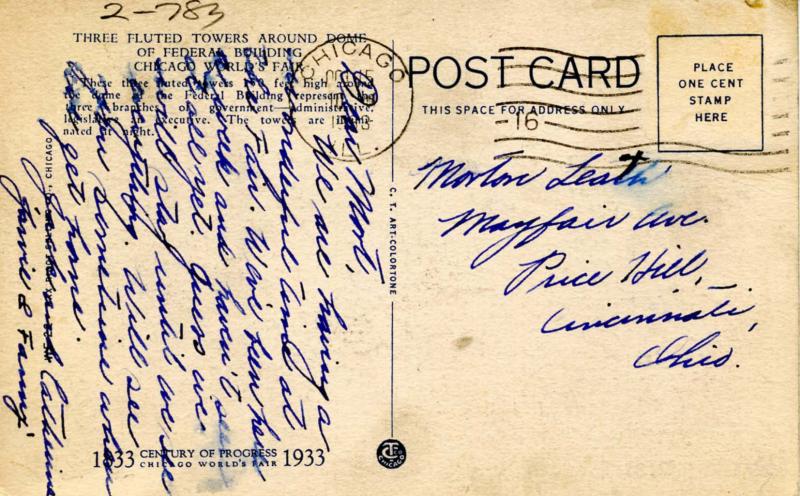 2-783
THREE FLUTED TOWERS AROUND DOME
OF FEDERAL BUILDING
CHICAGO WORLD'S FAIR
These three fluted towers 150 feet high around
the dome of the Federal Building represent the
three branches of government—Administrative,
legislative an executive. The towers are illumi-
nated at night.
Dear Mort,
We are having a
wonderful time at
the Fair. We've been here
a week and haven't seen
it all yet. Guess we
will stay until we see
everything. Will see
you sometime when
we get home.
Catherine
Fanny
1833 CENTURY OF PROGRESS 1933
CHICAGO WORLD'S FAIR
CHICAGO
C. T. ART-COLORTONE
CHICAGO
16
POST CARD
THIS SPACE FOR ADDRESS ONLY
PLACE
ONE CENT
STAMP
HERE
Morton Leath
Mayfair Ave.
Price Hill,
Cincinnati,
Ohio.